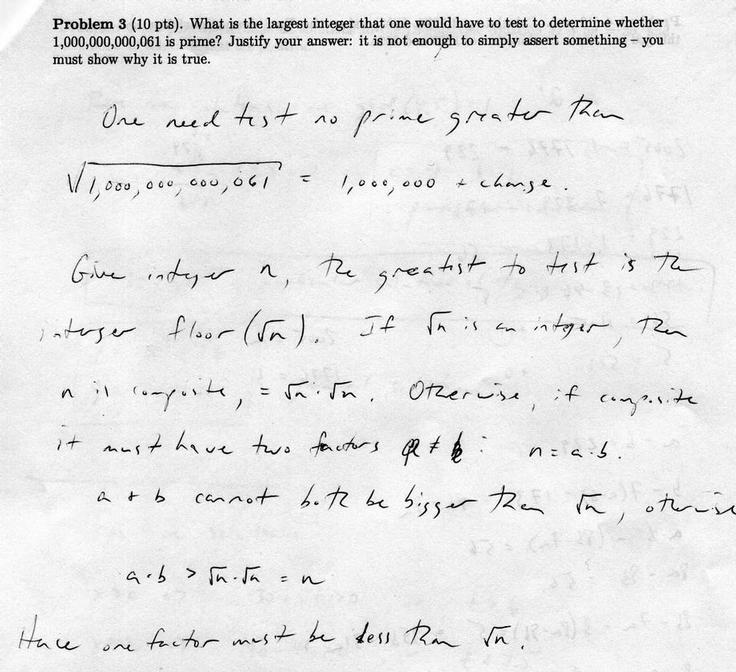 Problem 3 (10 pts). What is the largest integer that one would have to test to determine whether
1,000,000,000,061 is prime? Justify your answer: it is not enough to simply assert something – you
must show why it is true.
One need test no prime greater than
√1,000,000,000,061 = 1,000,000 + change.
Give integer n, the greatist to test is the
interger floor(√n). If √n is an intger, then
n is composite, = √n·√n. Otherwise, if composite
it must have two factors a ≠ b: n=a·b.
a + b cannot both be bigger than √n, otherwise
a·b > √n·√n = n
Hence one factor must be less than √n.